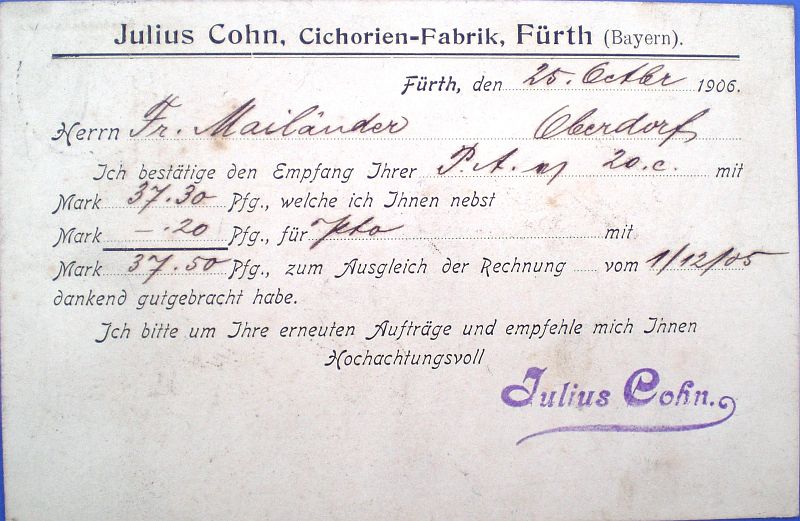 Julius Cohn, Cichorien-Fabrik, Fürth (Bayern).
Fürth, den 25. Octbr 1906.
Herrn Fr. Mailänder Oberdorf
Ich bestätige den Empfang Ihrer P. A. 20. c. mit
Mark 37.30 Pfg., welche ich Ihnen nebst
Mark —.20 Pfg., für mit
Mark 37.50 Pfg., zum Ausgleich der Rechnung vom 1/12/05
dankend gutgebracht habe.
Ich bitte um Ihre erneuten Aufträge und empfehle mich Ihnen
Hochachtungsvoll
Julius Cohn.